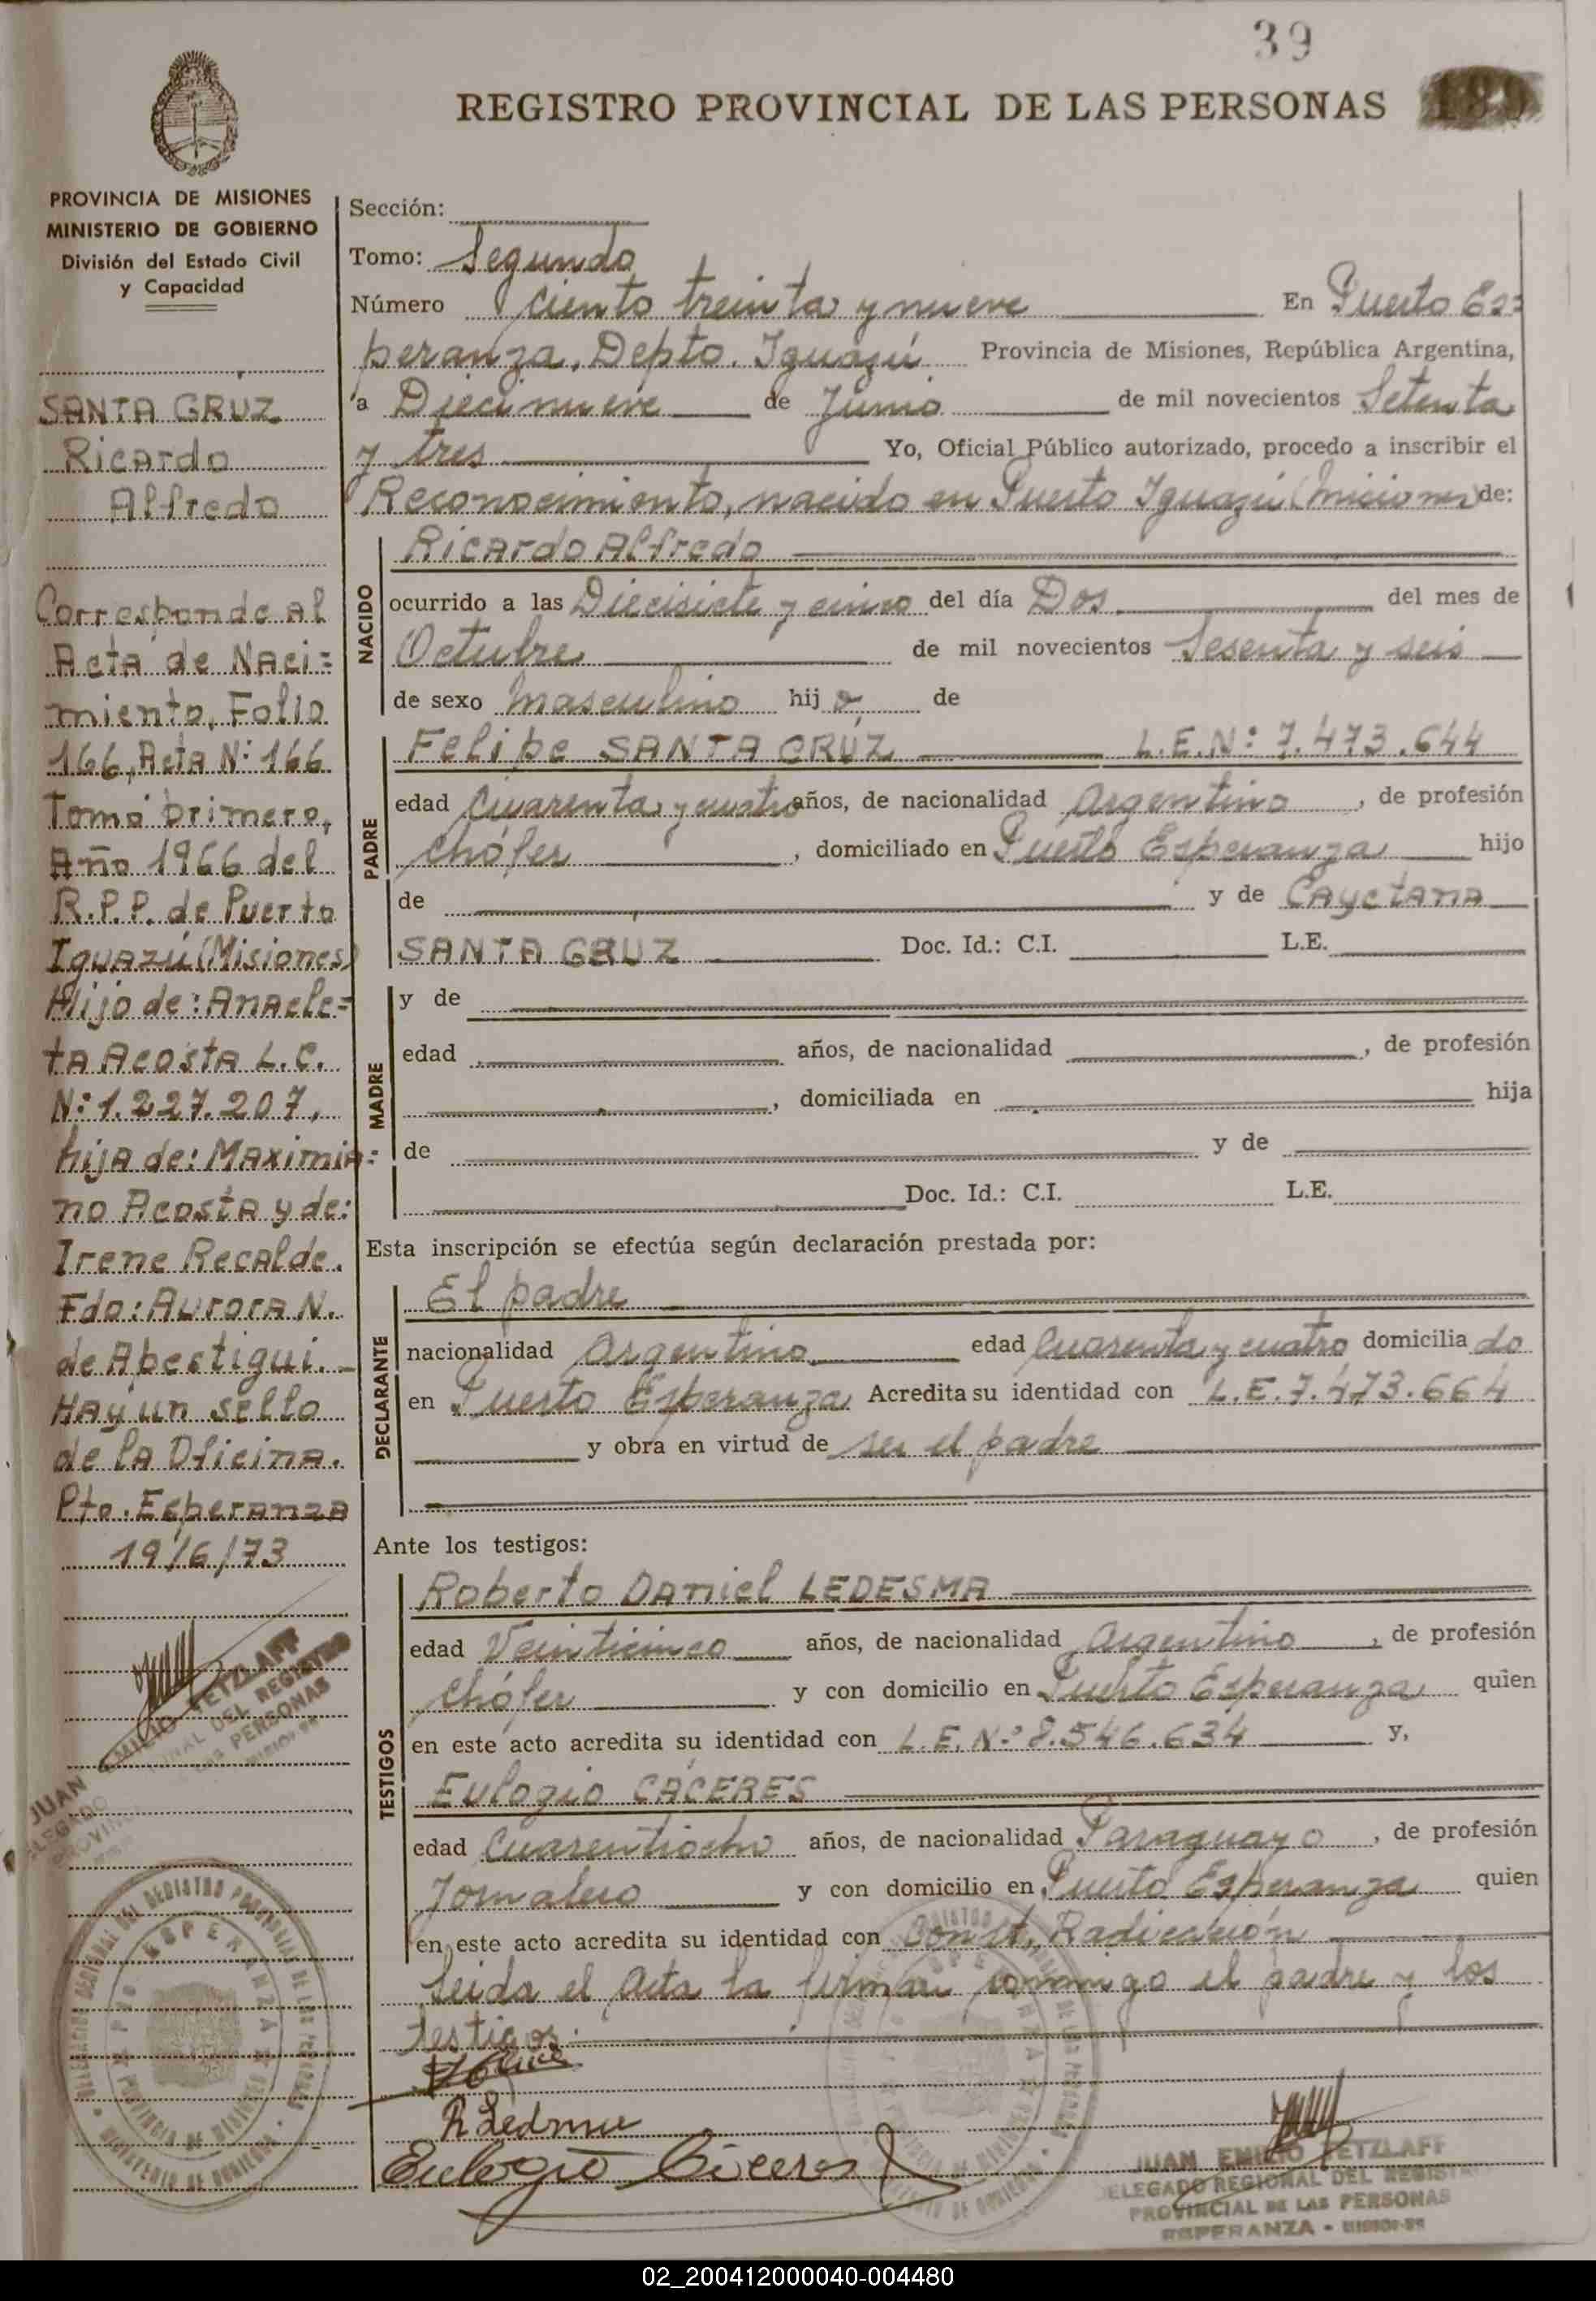 39
REGISTRO PROVINCIAL DE LAS PERSONAS
PROVINCIA DE MISIONES
MINISTERIO DE GOBIERNO
División del Estado Civil
y Capacidad
SANTA CRUZ
Ricardo
Alfredo
Corresponde al
Acta de Naci=
miento, Folio
166, Acta N: 166
Tomo primero,
Año 1966 del
R.P.P. de Puerto
Iguazú (Misiones)
Hijo de: Anacle=
ta Acosta L.C.
N: 1.227.207,
hija de: Maximia=
no Acosta y de:
Irene Recalde.
Fdo: Aurora N.
de Apestigui.
Hay un sello
de la Oficina.
Pto. Esperanza
19/6/73
Sección:
Tomo: Segundo
Número Ciento treinta y nueve En Puerto Es=
peranza, Depto. Iguazú Provincia de Misiones, República Argentina,
a Diecinueve de Junio de mil novecientos Setenta
y tres Yo, Oficial Público autorizado, procedo a inscribir el
Reconocimiento, nacido en Puerto Iguazú (Misiones) de:
NACIDO
Ricardo Alfredo
ocurrido a las Diecisiete y cinco del día Dos del mes de
Octubre de mil novecientos Sesenta y seis
de sexo Masculino hijo de
PADRE
Felipe SANTA CRUZ L.E.N: 7.473.644
edad Cuarenta y cuatro años, de nacionalidad Argentino, de profesión
Chófer, domiciliado en Puerto Esperanza hijo
de y de Cayetana
SANTA CRUZ Doc. Id.: C.I. L.E.
MADRE
y de
edad años, de nacionalidad , de profesión
, domiciliada en hija
de y de
Doc. Id.: C.I. L.E.
Esta inscripción se efectúa según declaración prestada por:
DECLARANTE
El padre
nacionalidad Argentino edad Cuarenta y cuatro domiciliado
en Puerto Esperanza Acredita su identidad con L.E. 7.473.664
y obra en virtud de ser el padre
Ante los testigos:
TESTIGOS
Roberto Daniel LEDESMA
edad Veinticinco años, de nacionalidad Argentino, de profesión
Chófer y con domicilio en Puerto Esperanza quien
en este acto acredita su identidad con L.E. N.º 8.546.634 y,
Eulogio CÁCERES
edad Cuarentiocho años, de nacionalidad Paraguayo, de profesión
Jornalero y con domicilio en Puerto Esperanza quien
en este acto acredita su identidad con Const. Radicación
Leida el Acta la firman conmigo el padre y los
testigos.
Eulogio Cáceres
JUAN EMILIO TETZLAFF
DELEGADO REGIONAL DEL REGISTRO
PROVINCIAL DE LAS PERSONAS
ESPERANZA - MISIONES
02_200412000040-004480